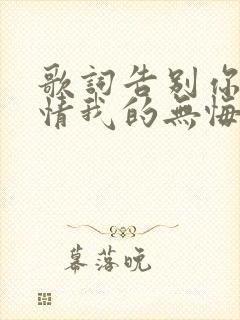 歌詞告别你
情我的無悔
幕落晚